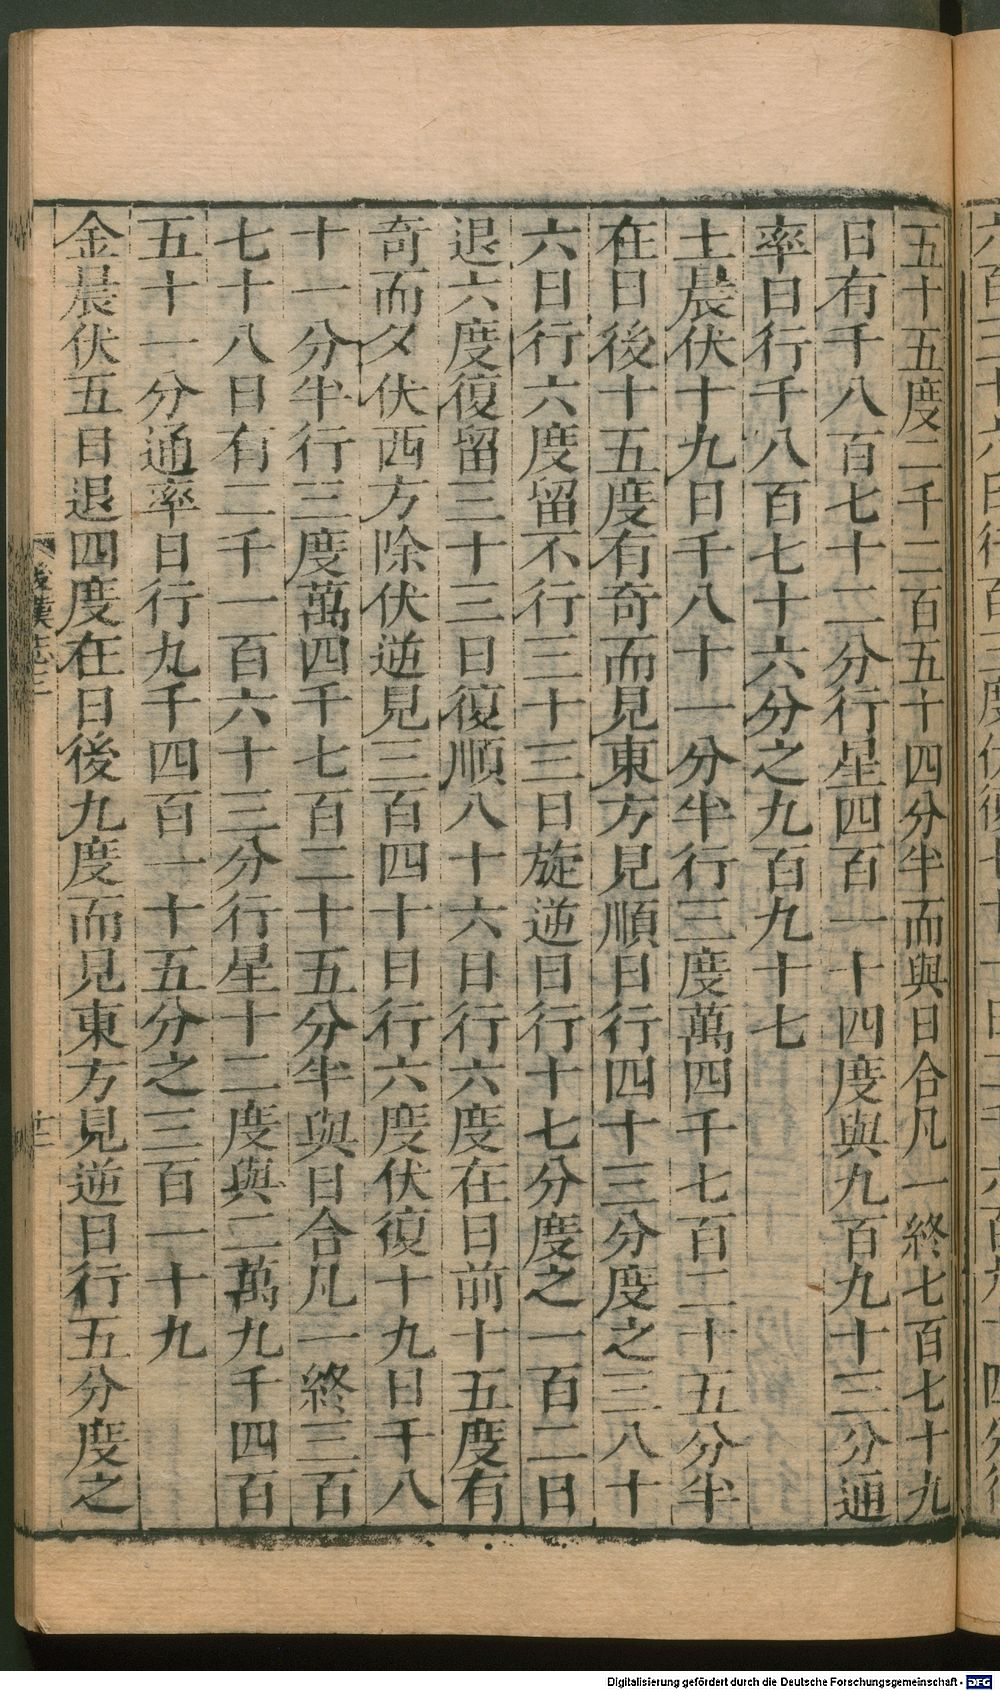 五十五度二千二百五十四分半而與日合凡一終七百七十九
日有千八百七十二分行星四百一十四度與九百九十三分通
率日行千八百七十六分之九百九十七
土晨伏十九日千八十一分半行三度萬四千七百二十五分半
在日後十五度有奇而見東方見順日行四十三分度之三八十
六日行六度留不行三十三日旋逆日行十七分度之一百二日
退六度復留三十三日復順八十六日行六度在日前十五度有
奇而夕伏西方除伏逆見三百四十日行六度伏復十九日千八
十一分半行三度萬四千七百二十五分半與日合凡一終三百
七十八日有二千一百六十三分行星十二度與二萬九千四百
五十一分通率日行九千四百一十五分之三百一十九
金晨伏五日退四度在日後九度而見東方見逆日行五分度之
後漢志三
十二
Digitalisierung gefördert durch die Deutsche Forschungsgemeinschaft - DFG